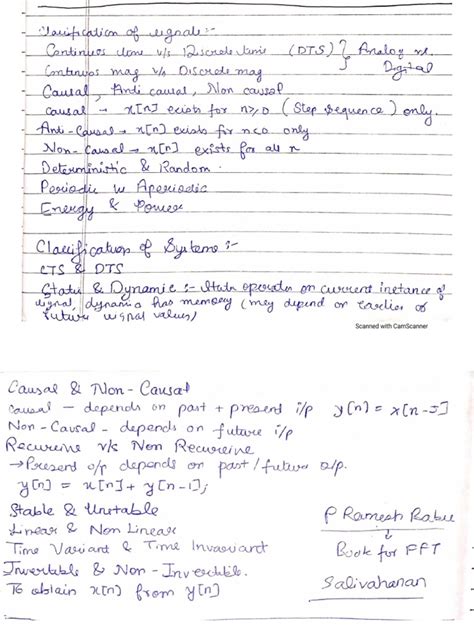 Classification of signals :-
Continuos time v/s Discrete time (DTS) } Analog vs.
Continuos mag v/s Discrete mag Digital
Causal, Anti causal, Non causal
causal → x[n] exists for n≥0 (Step sequence) only.
Anti-Causal → x[n] exists for n<0 only
Non-Causal → x[n] exists for all n
Deterministic & Random
Periodic vs Aperiodic
Energy & Power
Classification of Systems :-
CTS & DTS
Static & Dynamic :- Static operates on current instance of
signal, dynamic has memory (may depend on earlier or
future signal values)
Scanned with CamScanner
Causal & Non-Causal
causal - depends on past + present i/p y[n] = x[n-5]
Non-Causal - depends on future i/p
Recursive v/s Non Recursive
→Present o/p depends on past/future o/p.
y[n] = x[n] + y[n-1];
Stable & Unstable
Linear & Non Linear
Time Variant & Time Invariant
Invertible & Non-Invertible.
To obtain x[n] from y[n]
P Ramesh Babu
↓
Book for FFT
Salivahanan